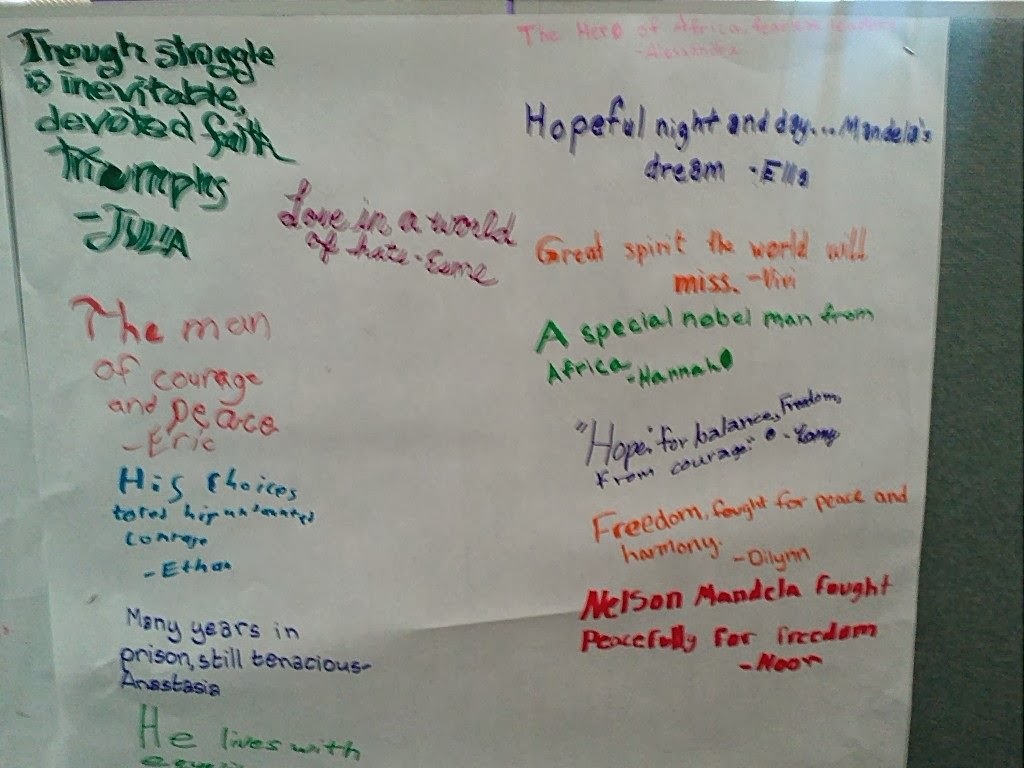 Though struggle
is inevitable,
devoted faith
triumphs
-JULIA
Love in a world
of hate-
The man
of courage
and peace
-Eric
His choices
courage
-Ethan
Many years in
prison, still tenacious-
Anastasia
He lives with
The Hero of Africa, fearless
-Alexandra
Hopeful night and day...Mandela's
dream -Ella
Great spirit the world will
miss. -Vivi
A special nobel man from
Africa -Hannah
"Hope": for balance, Freedom,
From courage." -
Freedom, fought for peace and
harmony.
-Oilynn
Nelson Mandela fought
Peacefully for freedom
-Noor